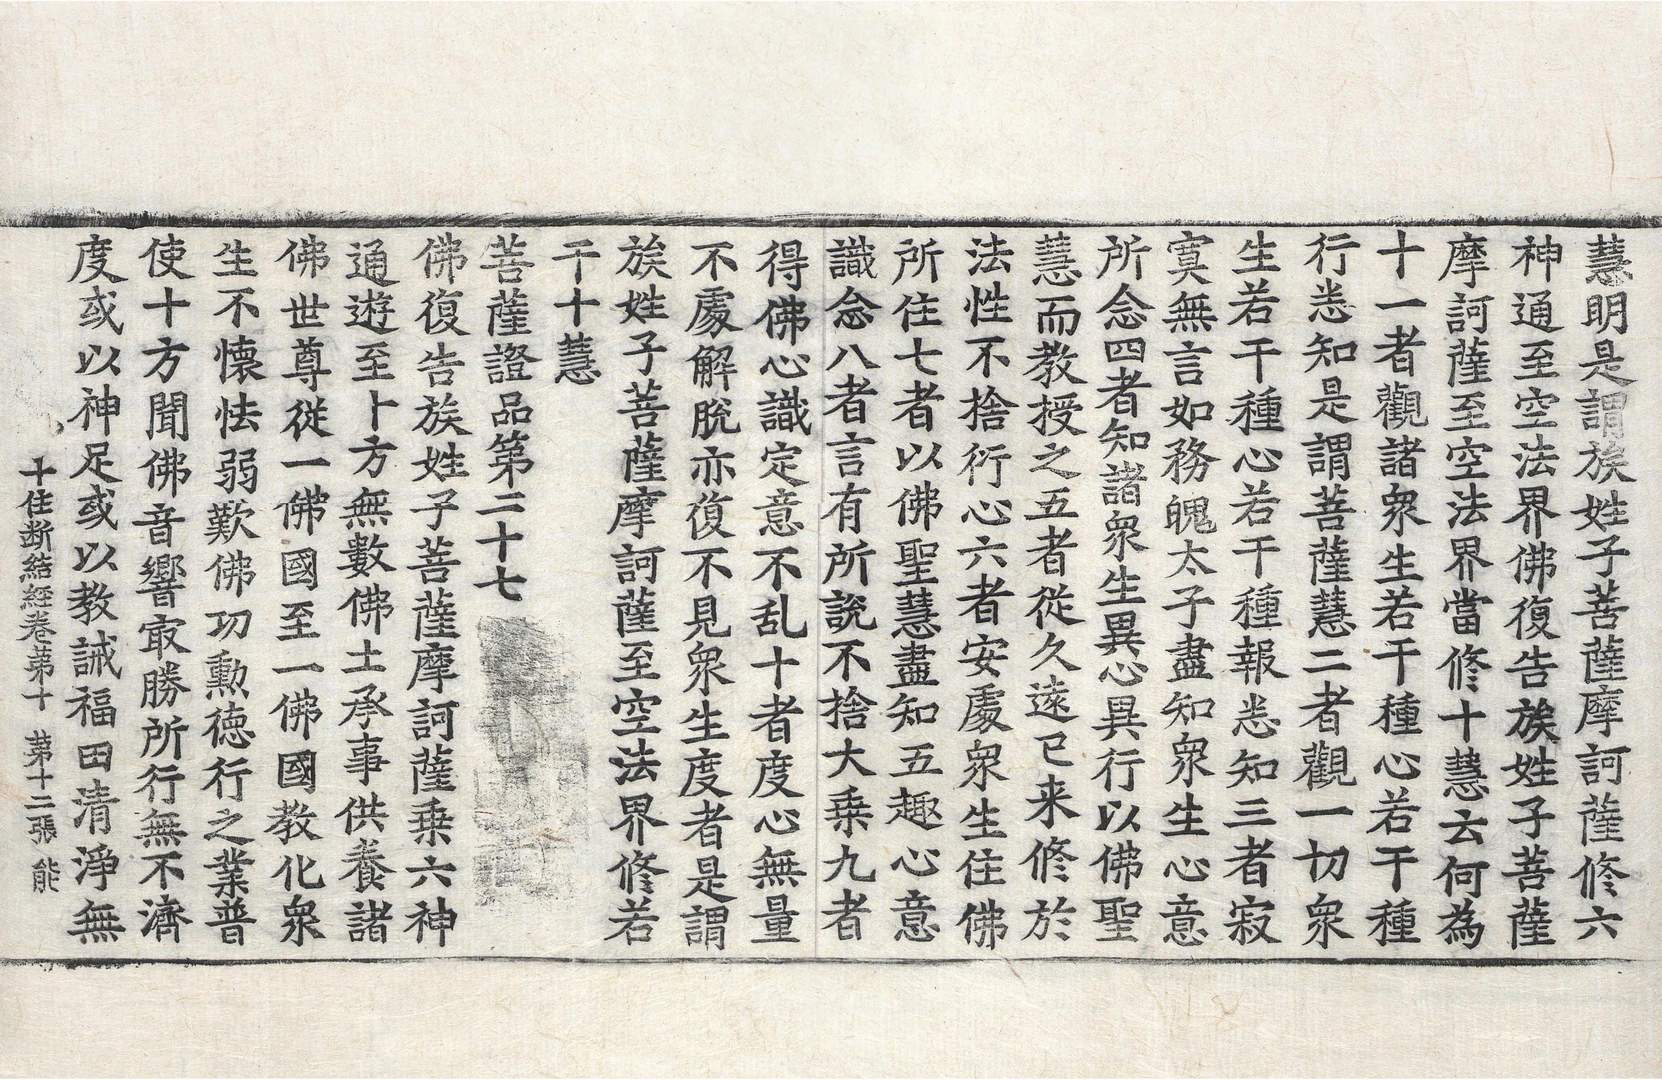 慧明是謂族姓子菩薩摩訶薩修六
神通至空法界佛復告族姓子菩薩
摩訶薩至空法界當修十慧云何為
十一者觀諸衆生若干種心若干種
行悉知是謂菩薩慧二者觀一切衆
生若干種心若干種報悉知三者寂
寞無言如務魄太子盡知衆生心意
所念四者知諸衆生異心異行以佛聖
慧而教授之五者從久遠已来修於
法性不捨衍心六者安處衆生住佛
所住七者以佛聖慧盡知五趣心意
識念八者言有所說不捨大乗九者
得佛心識定意不乱十者度心無量
不處解脫亦復不見衆生度者是謂
族姓子菩薩摩訶薩至空法界修若
干十慧
菩薩證品第二十七
佛復告族姓子菩薩摩訶薩乗六神
通遊至十方無數佛土承事供養諸
佛世尊從一佛國至一佛國教化衆
生不懷怯弱歎佛功勳徳行之業普
使十方聞佛音響㝡勝所行無不濟
度或以神足或以教誡福田清淨無
十住断結經卷苐十 苐十二張 能